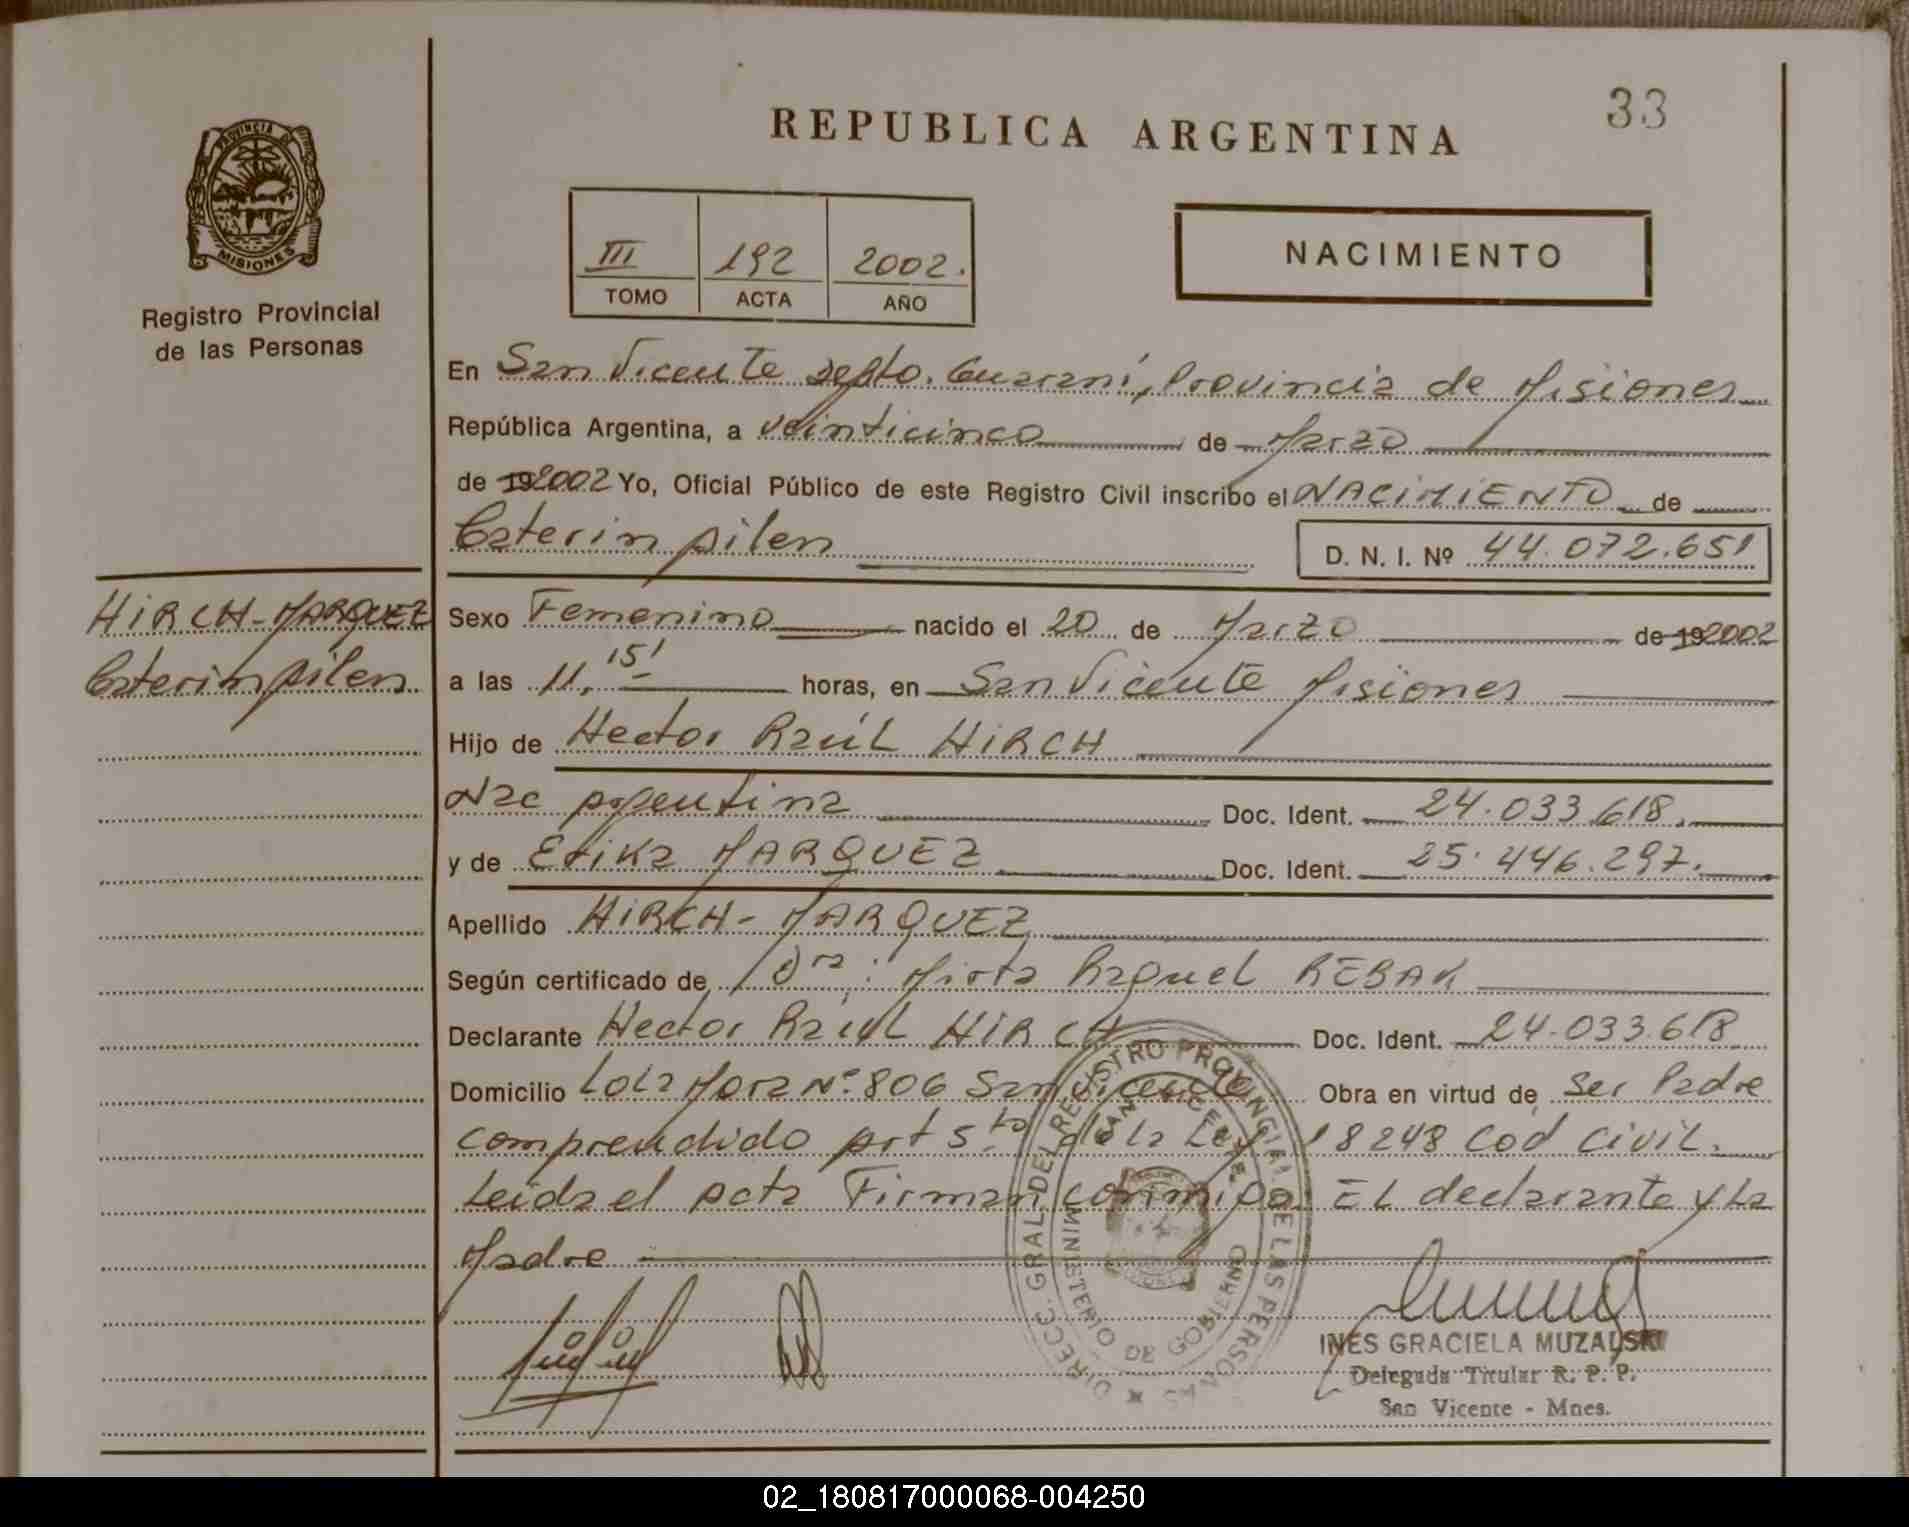 33
REPUBLICA ARGENTINA
PROVINCIA DE
MISIONES
Registro Provincial
de las Personas
III 192 2002.
TOMO ACTA AÑO
NACIMIENTO
En San Vicente Depto. Guaraní, Provincia de Misiones
República Argentina, a veinticinco de Marzo
de 19 2002 Yo, Oficial Público de este Registro Civil inscribo el NACIMIENTO de
Caterin Ailen D. N. I. Nº 44.072.651
HIRCH-MARQUEZ
Caterin Ailen
Sexo Femenino nacido el 20 de Marzo de 19 2002
a las 11,15' horas, en San Vicente Misiones
Hijo de Hector Raúl HIRCH
Nac Argentina Doc. Ident. 24.033.618.
y de Erika MARQUEZ Doc. Ident. 25.446.297.
Apellido HIRCH-MARQUEZ
Según certificado de Dra: Mirta Raquel REBAK
Declarante Hector Raúl HIRCH Doc. Ident. 24.033.618
Domicilio Lola Mora Nº 806 San Vicente Obra en virtud de Ser Padre
comprendido Art 5to de la Ley 18248 Cod Civil.
Leida el Acta Firman conmigo: El declarante y La
Madre
DIRECC. GRAL. DEL REGISTRO PROVINCIAL DE LAS PERSONAS
SAN VICENTE
MINISTERIO DE GOBIERNO
INES GRACIELA MUZALSKI
Delegada Titular R. P. P.
San Vicente - Mnes.
02_180817000068-004250